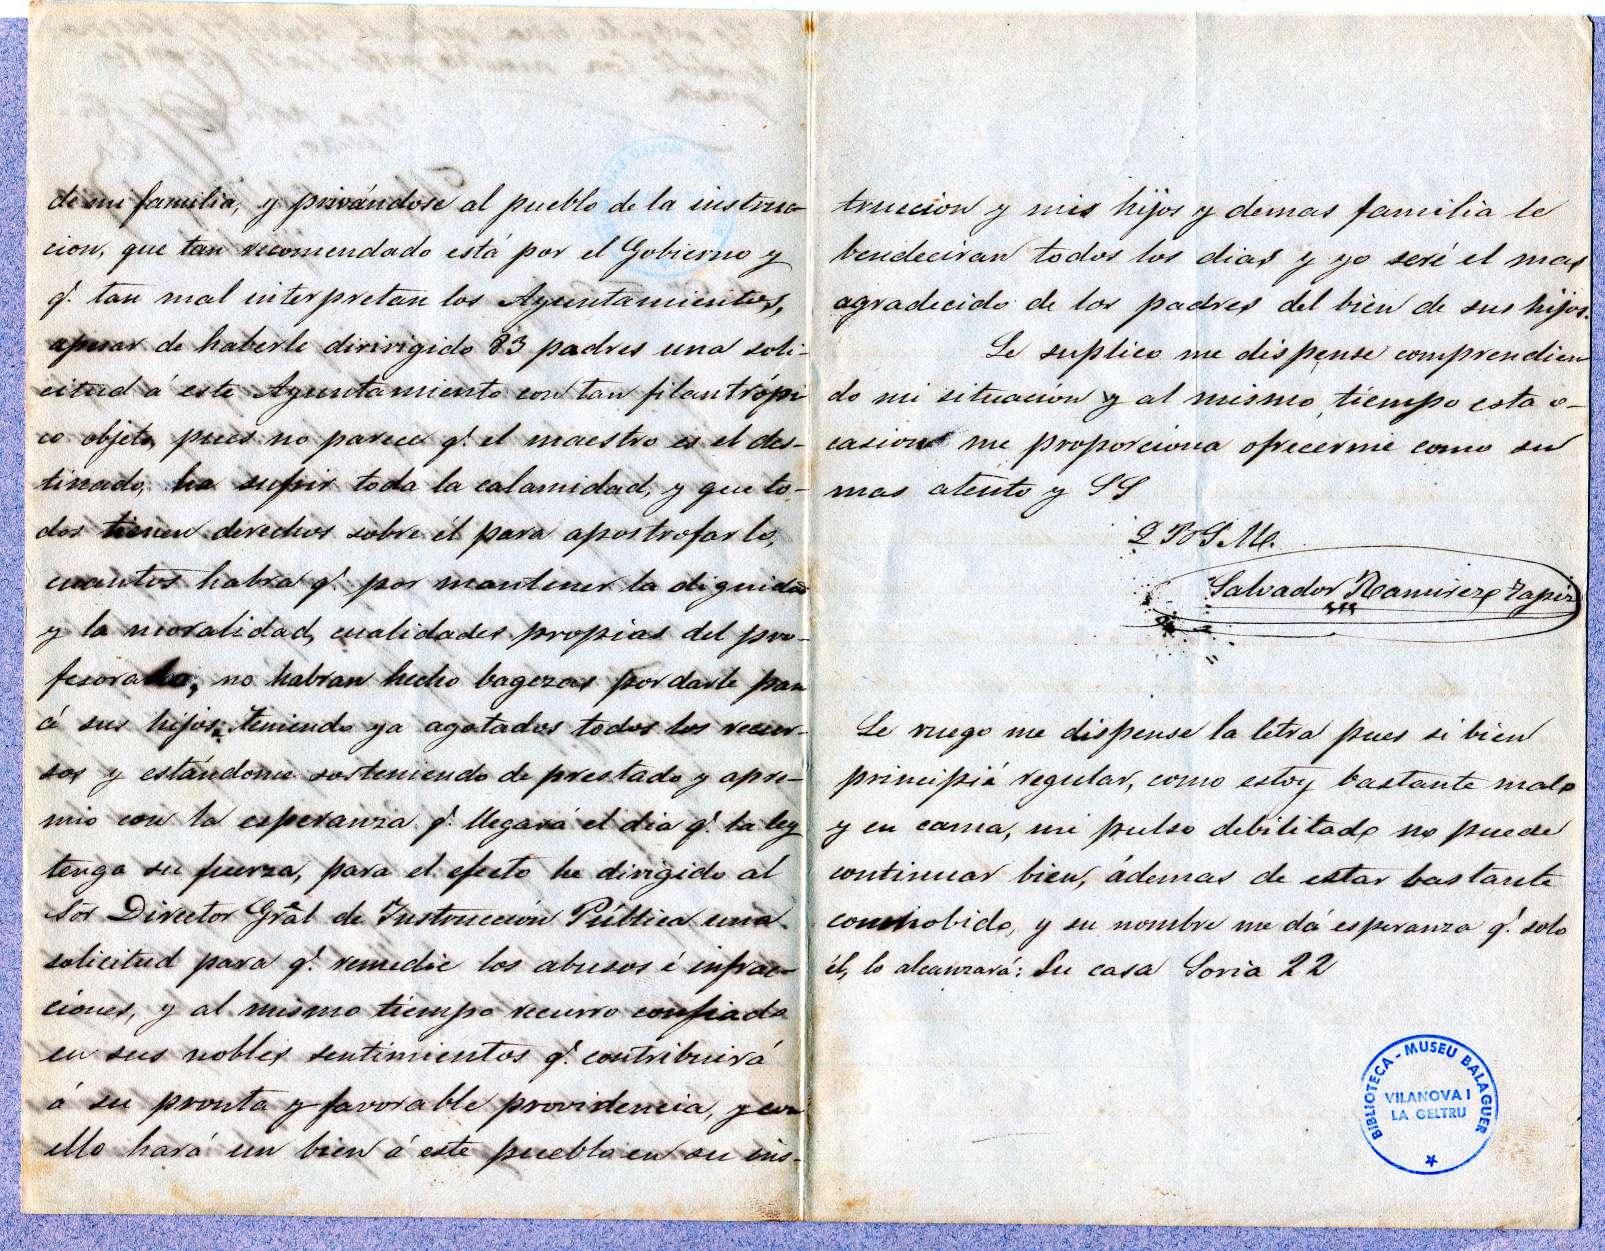 de mi familia, y privándose al pueblo de la instruc-
cion, que tan recomendado está por el Gobierno y
q.e tan mal interpretan los Ayuntamientos,
apesar de haberle diririgido 83 padres una soli-
citud á este Ayuntamiento con tan filantrópi
co objeto, pues no parece q.e el maestro es el des-
tinado, ha sufrir toda la calamidad, y que to-
dos tienen derechos sobre él para apostrofarlo,
cuantos habra q.e por mantener la dignidad
y la moralidad, cualidades propias del pro-
fesorado, no habran hecho bagezas por darle pan
á sus hijos. Teniendo ya agotados todos los recur-
sos y estándome sosteniendo de prestado y apre-
mio con la esperanza q.e llegará el dia q.e la ley
tenga su fuerza, para el efecto he dirigido al
Sor Director Gral de Instrucción Pública una
solicitud para q.e remedie los abusos é infrac-
ciones, y al mismo tiempo recurro confiado
en sus nobles sentimientos q.e contribuirá
á su pronta y favorable providencia, y con
ello hará un bien á este pueblo en su ins-
truccion y mis hijos y demas familia le
bendeciran todos los dias y yo seré el mas
agradecido de los padres del bien de sus hijos.
Le suplico me dispense comprendien
do mi situación y al mismo tiempo esta o-
casion me proporciona ofrecerme como su
mas atento y SS
Q B S M.
Salvador Ramirez Tapiz
Le ruego me dispense la letra pues si bien
principié regular, como estoy bastante malo
y en cama, mi pulso debilitado no puede
continuar bien, ádemas de estar bastante
cohobido, y su nombre me dá esperanza q.e solo
él, lo alcanzará: Su casa Soria 22
BIBLIOTECA - MUSEU BALAGUER
VILANOVA I
LA GELTRU